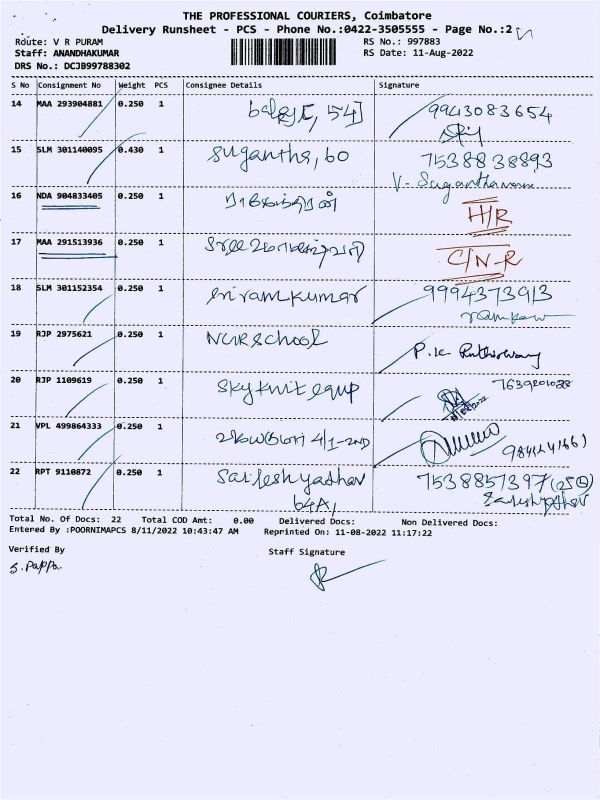 THE PROFESSIONAL COURIERS, Coimbatore
Delivery Runsheet - PCS - Phone No.:0422-3505555 - Page No.:2
Route: V R PURAM
RS No.: 997883
Staff: ANANDHAKUMAR
RS Date: 11-Aug-2022
DRS No.: DCJB99788302
S No Consignment No Weight PCS Consignee Details Signature
14 MAA 293904881 0.250 1 54] 9943083654
15 SLM 301140095 0.430 1 sugantha, 60 7538838893
V-
16 NDA 904833405 0.250 1 H/R
17 MAA 291513936 0.250 1 C/N-R
18 SLM 301152354 0.250 1 sriramkumar 9994373913
19 RJP 2975621 0.250 1 school P.K
20 RJP 1109619 0.250 1 sky knit equp 7639201028
21 VPL 499864333 0.250 1 4/1-2ND
22 RPT 9110872 0.250 1 7538857397
64A,
Total No. Of Docs: 22 Total COD Amt: 0.00 Delivered Docs: Non Delivered Docs:
Entered By :POORNIMAPCS 8/11/2022 10:43:47 AM Reprinted On: 11-08-2022 11:17:22
Verified By Staff Signature
S. Pappa.